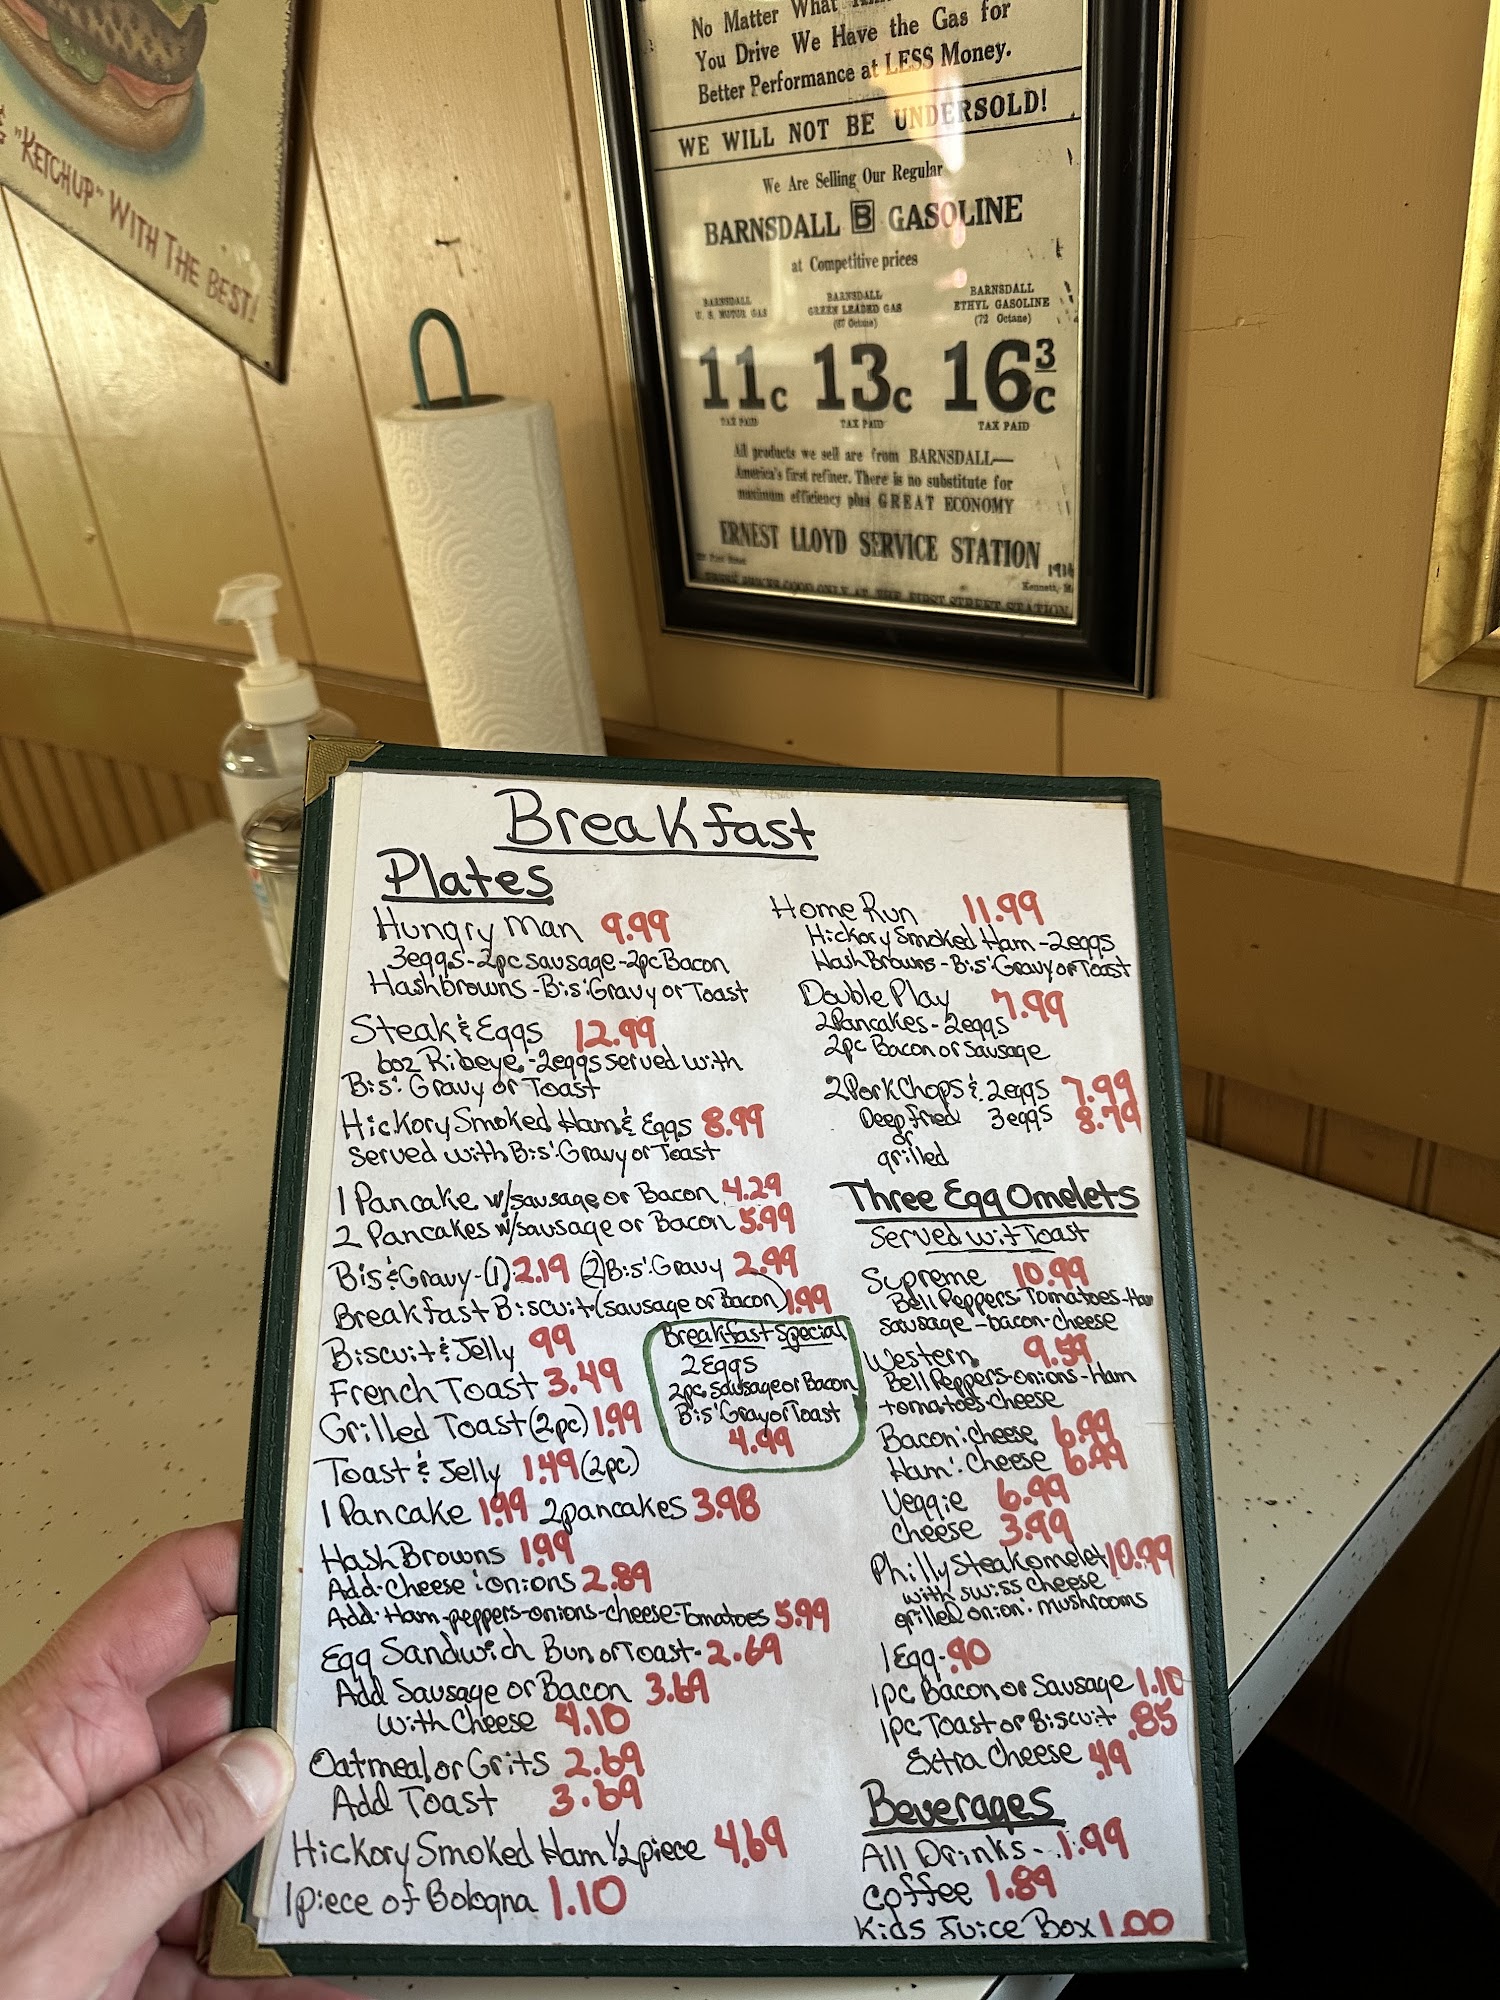 "KETCHUP" WITH THE BEST!
No Matter What
You Drive We Have the Gas for
Better Performance at LESS Money.
WE WILL NOT BE UNDERSOLD!
We Are Selling Our Regular
BARNSDALL B GASOLINE
at Competitive prices
BARNSDALL
U. S. MOTOR GAS
BARNSDALL
GREEN LEADED GAS
(67 Octane)
BARNSDALL
ETHYL GASOLINE
(72 Octane)
11c 13c 16 3/c
TAX PAID TAX PAID TAX PAID
All products we sell are from BARNSDALL—
America's first refiner. There is no substitute for
maximum efficiency plus GREAT ECONOMY
ERNEST LLOYD SERVICE STATION
Kennett,
THESE PRICES GOOD ONLY AT THE FIRST STREET STATION
Breakfast
Plates
Hungry Man 9.99
3eggs-2pc sausage-2pc Bacon
Hashbrowns-Bis'Gravy or Toast
Steak & Eggs 12.99
6oz Ribeye-2eggs served with
Bis' Gravy or Toast
Hickory Smoked Ham & Eggs 8.99
Served with Bis' Gravy or Toast
1 Pancake w/sausage or Bacon 4.29
2 Pancakes w/sausage or Bacon 5.99
Bis & Gravy-(1) 2.19 (2)Bis'Gravy 2.99
Breakfast Biscuit (sausage or Bacon) 1.99
Biscuit & Jelly 99
French Toast 3.49
Grilled Toast (2pc) 1.99
Toast & Jelly 1.49 (2pc)
1 Pancake 1.99 2pancakes 3.98
Hash Browns 1.99
Add-Cheese 'onions 2.89
Add-Ham-peppers-onions-cheese-Tomatoes 5.99
Egg Sandwich Bun or Toast- 2.69
Add Sausage or Bacon 3.69
with Cheese 4.10
Oatmeal or Grits 2.69
Add Toast 3.69
Hickory Smoked Ham 1/2 piece 4.69
1 piece of Bologna 1.10
Breakfast Special
2 Eggs
2pc Sausage or Bacon
Bis' Gray or Toast
4.99
Home Run 11.99
Hickory Smoked Ham-2eggs
Hash Browns-Bis'Gravy or Toast
Double Play 7.99
2Pancakes-2eggs
2pc Bacon or Sausage
2 Pork Chops & 2eggs 7.99
Deep fried 3eggs 8.79
or
grilled
Three Egg Omelets
Served wit Toast
Supreme 10.99
Bell Peppers-Tomatoes-Ham
sausage-bacon-cheese
Western 9.59
Bell Peppers-onions-Ham
tomatoes-cheese
Bacon'cheese 6.99
Ham'cheese 6.99
Veggie 6.99
cheese 3.99
Philly Steak omelet 10.99
with swiss cheese
grilled onion'mushrooms
1 Egg-.90
1pc Bacon or Sausage 1.10
1pc Toast or Biscuit .85
Extra Cheese .49
Beverages
All Drinks-..1.99
Coffee 1.89
Kids Juice Box 1.00